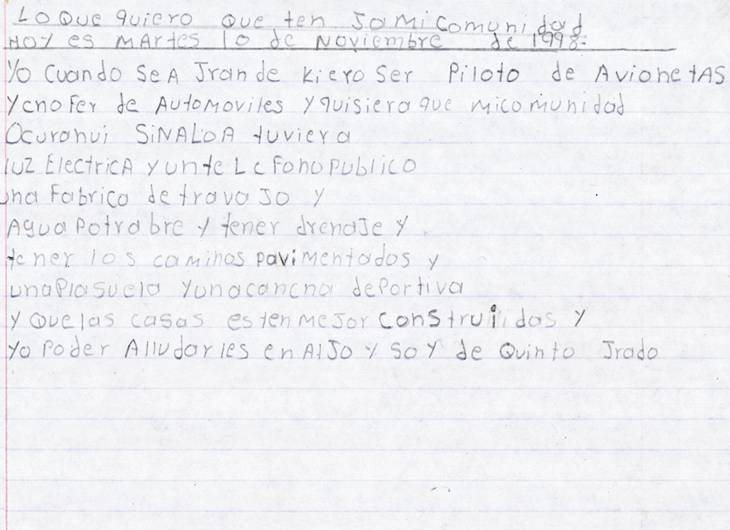 Lo que quiero que ten Ja mi comunidad
Hoy es martes 10 de noviembre de 1998:
Yo cuando sea Jrande kiero ser Piloto de AvionetAS
y cnofer de Automoviles y quisiera que mi comunidad
Ocuranui SiNALOA tuviera
luz ElectricA y un teLefono publico
una fabrica de travaJo y
Agua Potrabre y tener drenaJe y
tener los caminos pavimentados y
una Plasuela y una cancna dePortiva
y que las casas esten meJor construiidas y
yo Poder Alludarles en AlJo y soy de Quinto Jrado